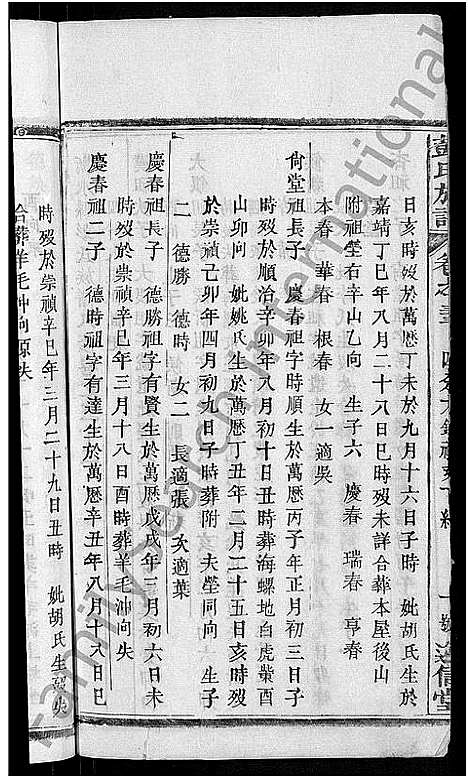 氏族譜
達信堂
日亥時歿於萬歷丁未於九月十六日子時 妣胡氏生於
嘉靖丁巳年八月二十八日巳時歿未詳合葬本屋後山
附祖塋右辛山乙向 生子六 慶春 瑞春 亨春
本春 華春 根春 女一適吳
尚堂祖長子 慶春祖字時順生於萬歷丙子年正月初三日子
時歿於順治辛卯年八月初十日子時葬海螺地白虎嘴酉
山卯向 妣姚氏生於萬歷丁丑年二月二十五日亥時歿
於崇禎己卯年四月初九日子時葬附 夫塋同向 生子
二 德勝 德時 女二 長適張 次適葉
慶春祖長子 德勝祖字有賢生於萬歷戊戌年三月初六日未
時歿於崇禎辛巳年三月十八日酉時葬羊毛沖向失
慶春祖二子 德時祖字有達生於萬歷辛丑年八月十八日巳
時歿於崇禎辛巳年三月二十九日丑時 妣胡氏生歿失
合葬羊毛沖向原失
FamilySearch International